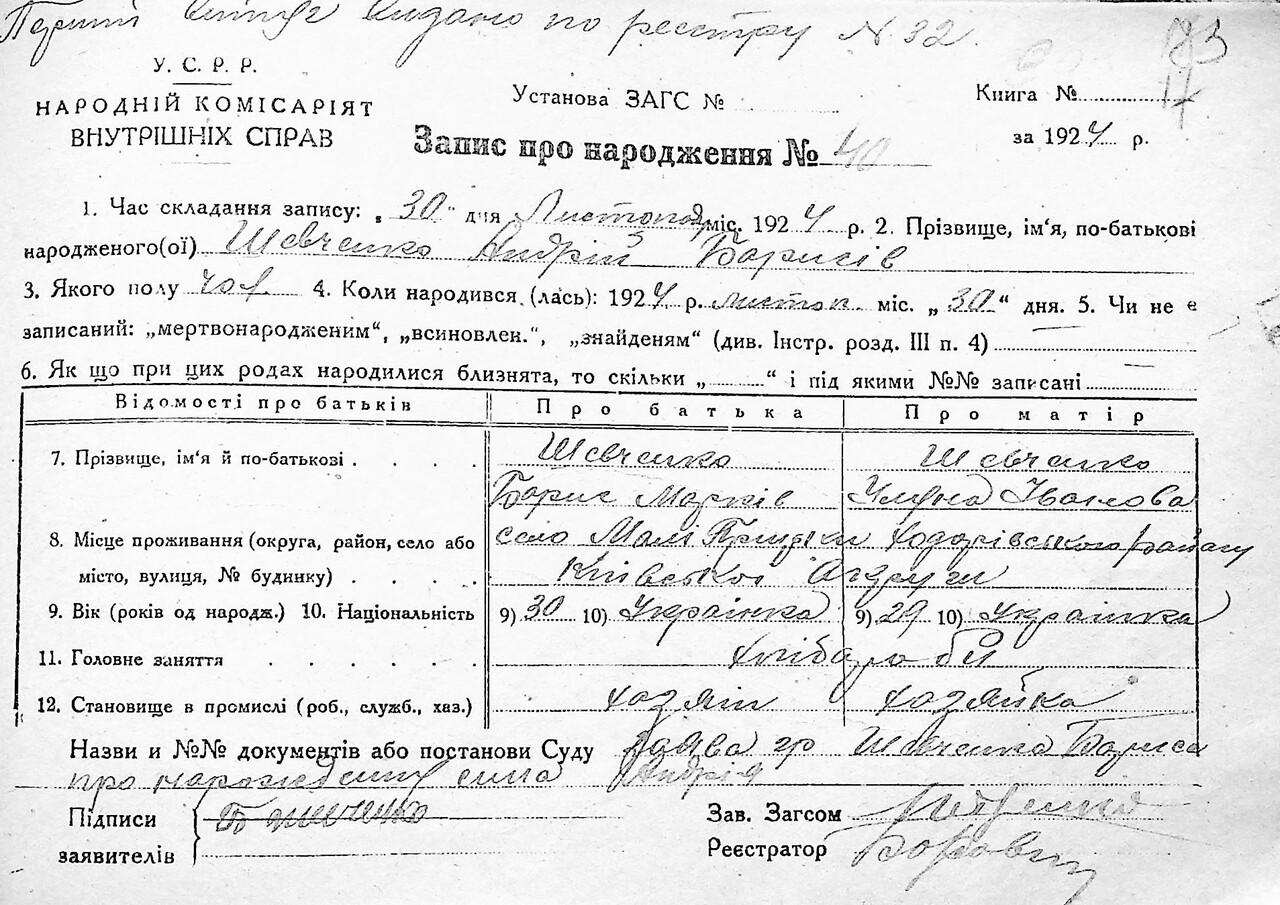 Перший витяг видано по реєстру N 32.
У. С. Р. Р.
НАРОДНІЙ КОМІСАРІЯТ
ВНУТРІШНІХ СПРАВ
Установа ЗАГС №
Книга №
за 1924 р.
Запис про народження № 40
1. Час складання запису: „ 30 " дня Листопад міс. 1924 р. 2. Прізвище, ім'я, по-батькові
народженого(ої) Шевченко Андрій Борисів
3. Якого полу чол. 4. Коли народився (лась): 1924 р. листоп. міс. „ 30 " дня. 5. Чи не є
записаний: „мертвонародженим", „всиновлен.", „знайденям" (див. Інстр. розд. III п. 4)
6. Як що при цих родах народилися близнята, то скільки „ " і під якими №№ записані
Відомості про батьків Про батька Про матір
7. Прізвище, ім'я й по-батькові Шевченко Шевченко
Борис Марків Уляна Іванова
8. Місце проживання (округа, район, село або село Малі Прицьки Ходорівського району
місто, вулиця, № будинку) Київської Округи
9. Вік (років од народж.) 10. Національність 9) 30 10) Українка 9) 29 10) Українка
11. Головне заняття хлібороби
12. Становище в промислі (роб., служб., хаз.) хозяін хозяйка
Назви и №№ документів або постанови Суду Заява гр Шевченка Бориса
про народження сина Андрія
Підписи
заявителів
Б Шевченко
Зав. Загсом
Реєстратор